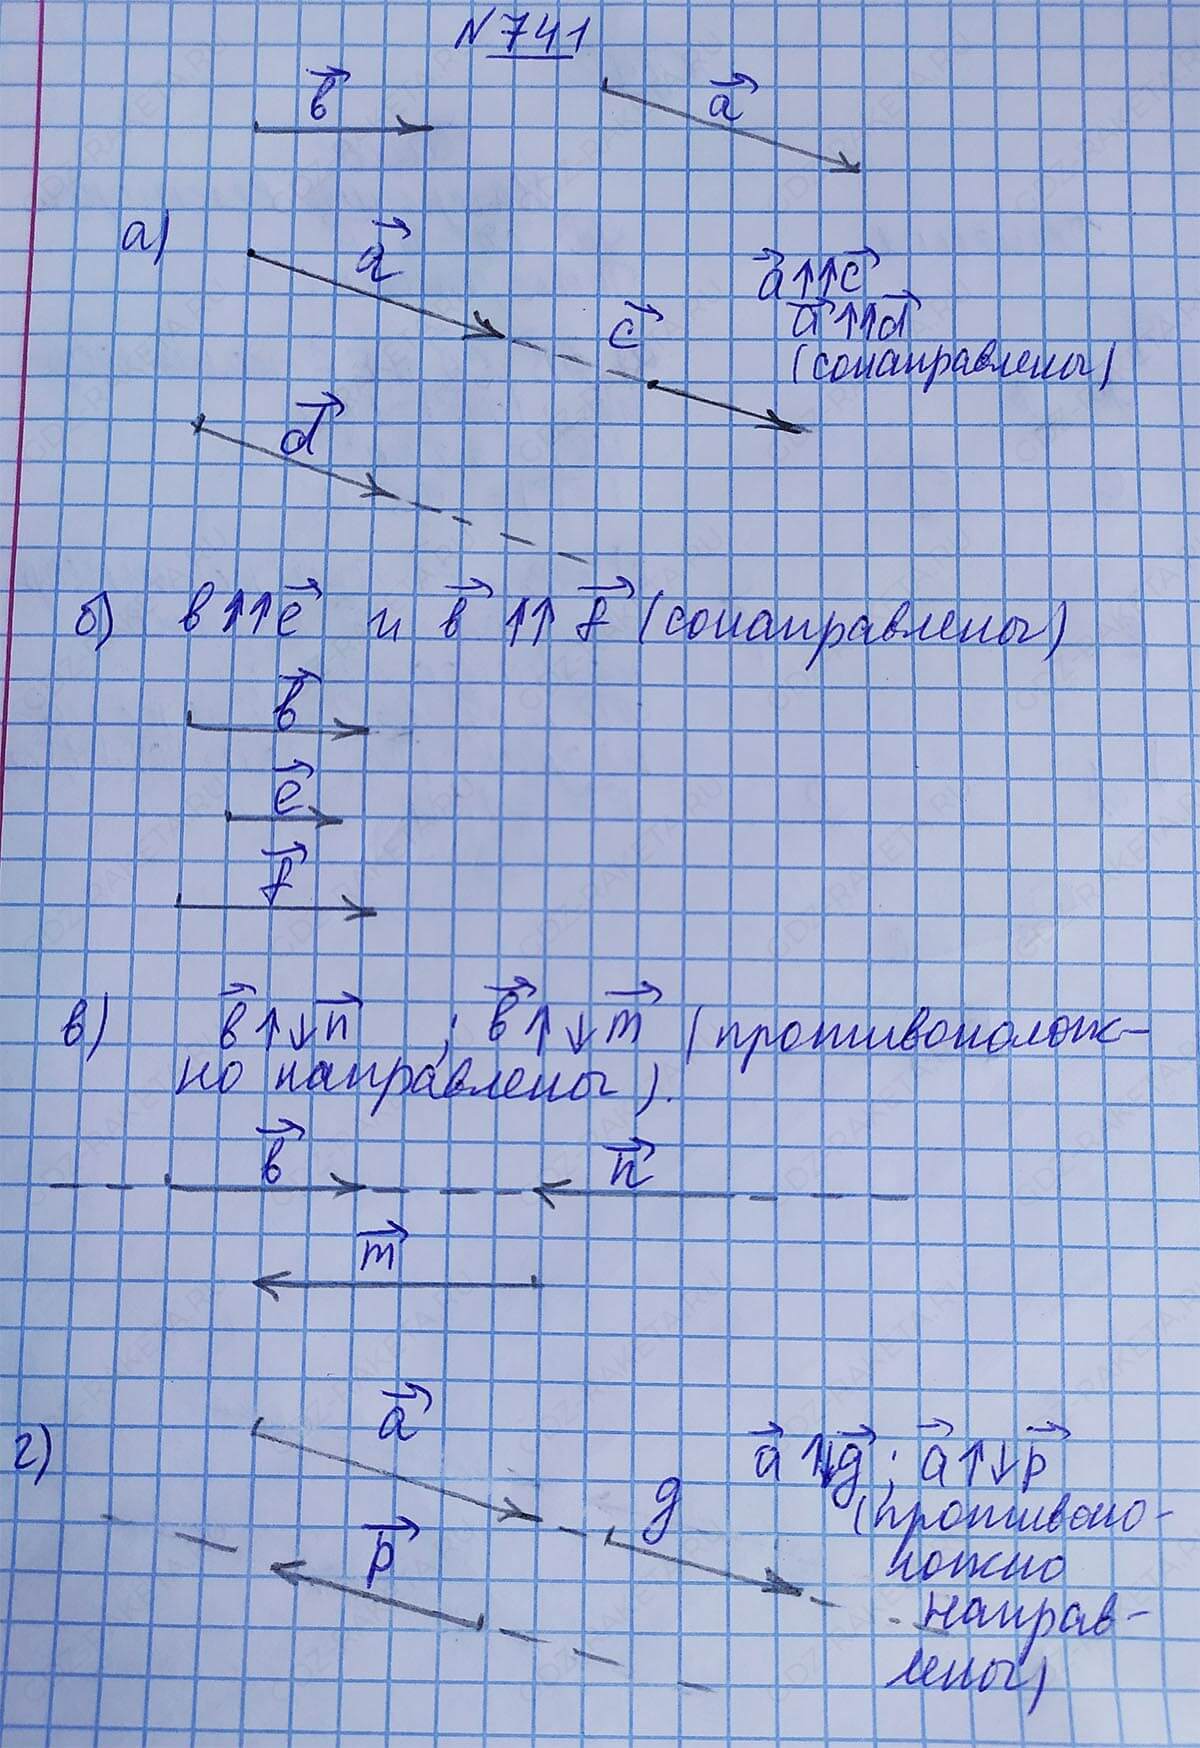 N 741
b⃗ a⃗
а) a⃗
a⃗↑↑c⃗
c⃗ a⃗↑↑d⃗
(сонаправлены)
d⃗
б) b↑↑e⃗ и b⃗ ↑↑ f⃗ (сонаправлены)
b⃗
e⃗
f⃗
в) b⃗↑↓n⃗ ; b⃗↑↓m⃗ (противополож-
но направлены).
b⃗ n⃗
m⃗
a⃗
г) a⃗↑↓g⃗ ; a⃗↑↓p⃗
g (противопо-
p⃗ ложно
направ-
лены)
GDZ-RAKETA.RU